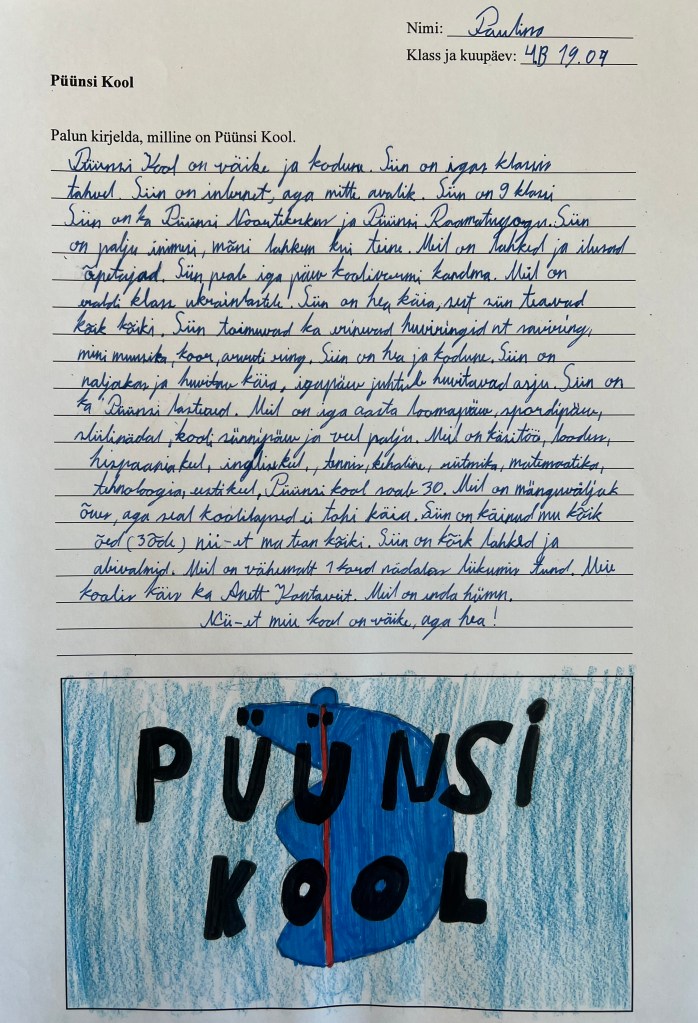 Nimi: Paulina
Klass ja kuupäev: 4B 19.04
Püünsi Kool
Palun kirjelda, milline on Püünsi Kool.
Püünsi Kool on väike ja kodune. Siin on igas klassis
tahvel. Siin on internet, aga mitte avalik. Siin on 9 klassi
Siin on ka Püünsi Noortekeskus ja Püünsi Raamatukogu. Siin
on palju inimesi, mõni lahkem kui teine. Meil on lahked ja ilusad
õpetajad. Siin peab iga päev koolivormi kandma. Meil on
eraldi klass ukrainlastele. Siin on hea käia, sest siin teavad
kõik kõiki. Siin toimuvad ka erinevad huviringid nt saviring,
mini muusika, koor, arvuti ring. Siin on hea ja kodune. Siin on
naljakas ja huvitav käia, igapäev juhtub huvitavad asju. Siin on
ka Püünsi lasteaed. Meil on iga aasta loomapäev, spordipäev,
stiilinädal, kooli sünnipäev ja veel palju. Meil on käsitöö, loodus,
hispaaniakeel, inglisekeel, tennis, kehaline, rütmika, matemaatika,
tehnoloogia, eestikeel, Püünsi kool saab 30. Meil on mänguväljak
õues, aga seal koolilapsed ei tohi käia. Siin on käinud mu kõik
õed (3 õde) nii-et ma tean kõiki. Siin on kõik lahked ja
abivalmid. Meil on vähemalt 1 kord nädalas liikumis tund. Meie
koolis käis ka Anett Kontaveit. Meil on enda hümn.
Nii-et meie kool on väike, aga hea!
PÜÜNSI
KOOL